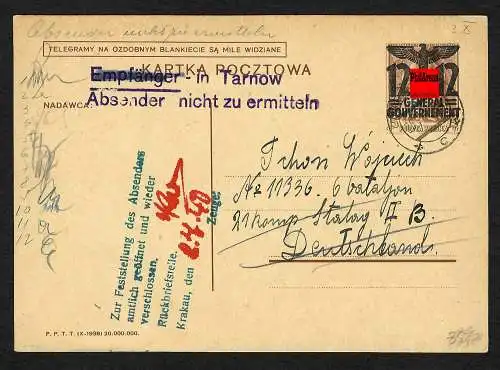 Absender unbekannt zu ermitteln
3 X
TELEGRAMY NA OZDOBNYM BLANKIECIE SĄ MILE WIDZIANE
KARTKA POCZTOWA
Empfänger - in Tarnow
Absender nicht zu ermitteln
NADAWCA:
12 12
GENERAL
GOUVERNEMENT
1
2
3
4
5
6
7
8
9
10
11
12
Zur Feststellung des Absenders
amtlich geöffnet und wieder
verschlossen.
Rückbriefstelle.
Krakau, den 2.4.40
Zeuge:
Tchori Wojciech
No 11336. 6 bataljon
21 Komp Stalag 7 B.
Deutschland.
P. P. T. T. (X-1938) 20.000.000.